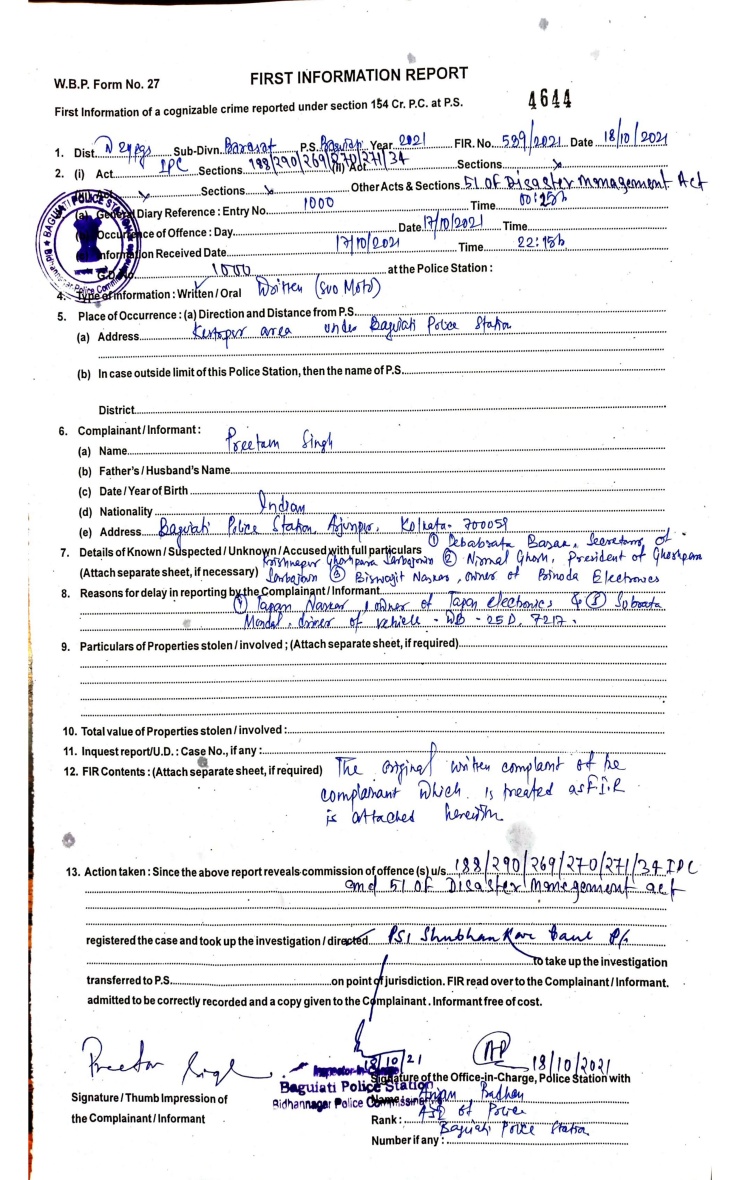 W.B.P. Form No. 27
FIRST INFORMATION REPORT
First Information of a cognizable crime reported under section 154 Cr. P.C. at P.S.
4644
1. Dist. N 24 pgs Sub-Divn. Barasat P.S. Baguiati Year 2021 FIR. No. 589/2021 Date 18/10/2021
2. (i) Act IPC Sections 188/290/269/270/271/34 (ii) Act Sections
Sections Other Acts & Sections 51 OF Disaster Management Act
(a) General Diary Reference : Entry No. 1000 Time 00:25h
Occurrence of Offence : Day Date 17/10/2021 Time
Information Received Date 17/10/2021 Time 22:15h
1000 at the Police Station :
BAGUIATI POLICE STATION
4. Type of Information : Written / Oral Written (Suo Moto)
5. Place of Occurrence : (a) Direction and Distance from P.S.
(a) Address Kestopur area under Baguiati Police Station
(b) In case outside limit of this Police Station, then the name of P.S.
District
6. Complainant / Informant :
(a) Name Preetam Singh
(b) Father's / Husband's Name
(c) Date / Year of Birth
(d) Nationality Indian
(e) Address Baguiati Police Station, Arjunpur, Kolkata- 700059
7. Details of Known / Suspected / Unknown / Accused with full particulars ① Debabrata Basak, Secretary of
Krishnapur Ghoshpara Sarbojonin ② Nirmal Ghosh, President of Ghoshpara
(Attach separate sheet, if necessary) Sarbojonin ③ Biswajit Naskar, owner of Binoda Electronics
8. Reasons for delay in reporting by the Complainant / Informant
④ Tapan Naskar, owner of Tapan electronics & ⑤ Subrata
Mondal, driver of vehicle - WB - 25D, 7217.
9. Particulars of Properties stolen / involved ; (Attach separate sheet, if required)
10. Total value of Properties stolen / involved :
11. Inquest report/U.D. : Case No., if any :
12. FIR Contents : (Attach separate sheet, if required) The original written complaint of the
complainant which is treated as F.I.R
is attached herewith
13. Action taken : Since the above report reveals commission of offence (s) u/s. 188/290/269/270/271/34 IPC
and 51 OF Disaster Management act
registered the case and took up the investigation / directed PSI Shubhankar
to take up the investigation
transferred to P.S. on point of jurisdiction. FIR read over to the Complainant / Informant.
admitted to be correctly recorded and a copy given to the Complainant . Informant free of cost.
18/10/21
18/10/2021
Inspector-in-Charge
Baguiati Police Station
Bidhannagar Police Commissionerate
Signature of the Office-in-Charge, Police Station with
Signature / Thumb Impression of
the Complainant / Informant
Rank : ASI of Police
Baguiati Police Station
Number if any :